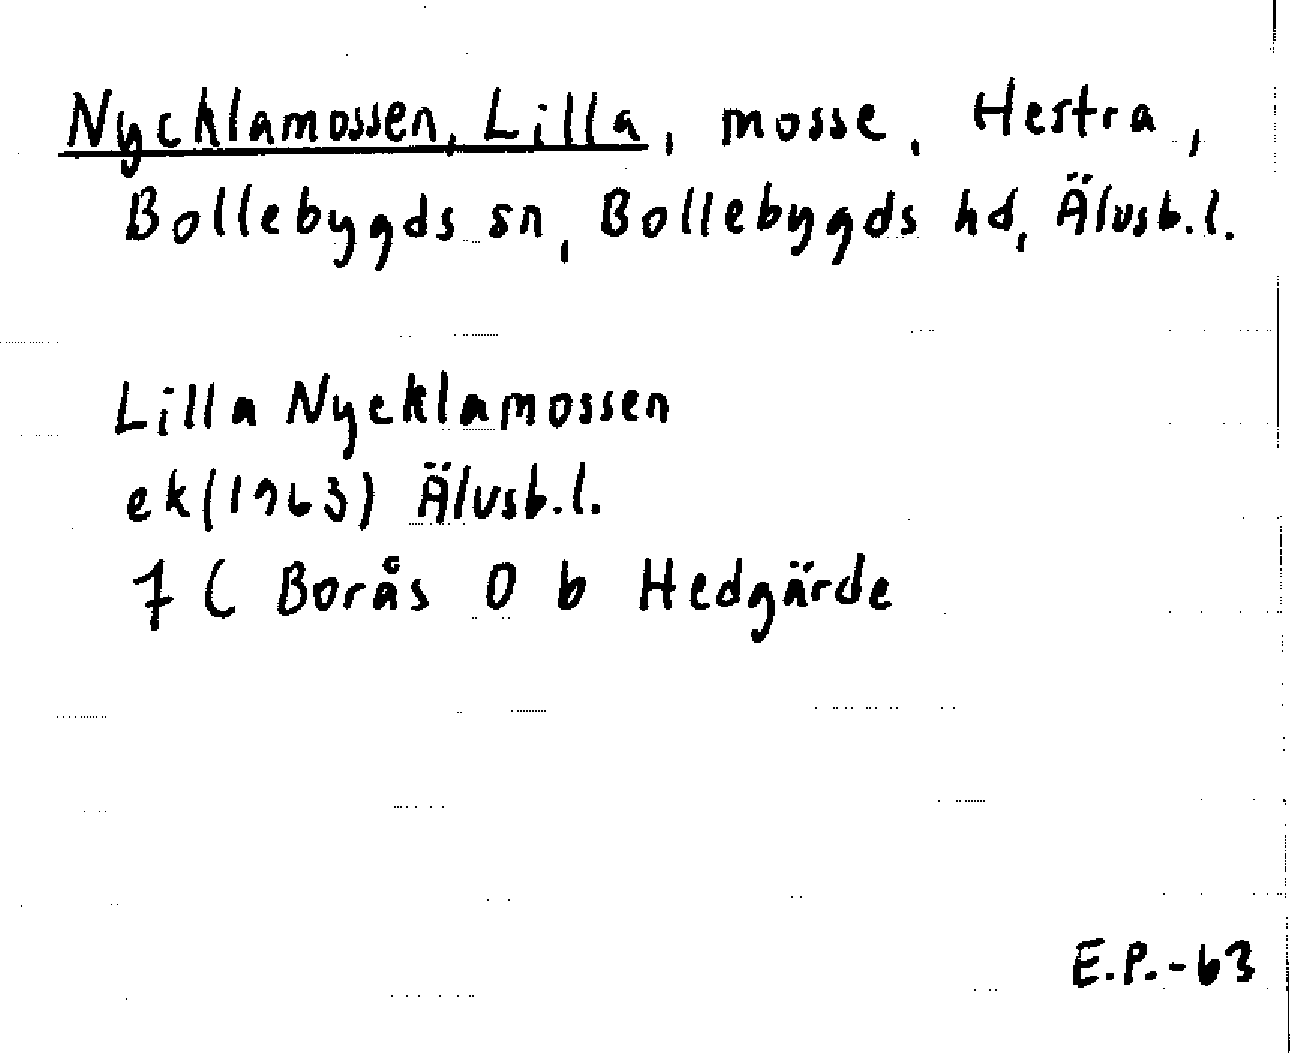 Nycklamossen, Lilla, mosse, Hestra,
Bollebygds sn, Bollebygds hd, Älvsb.l.
Lilla Nycklamossen
ek(1963) Älvsb.l.
7 C Borås 0 b Hedgärde
E.P.-63